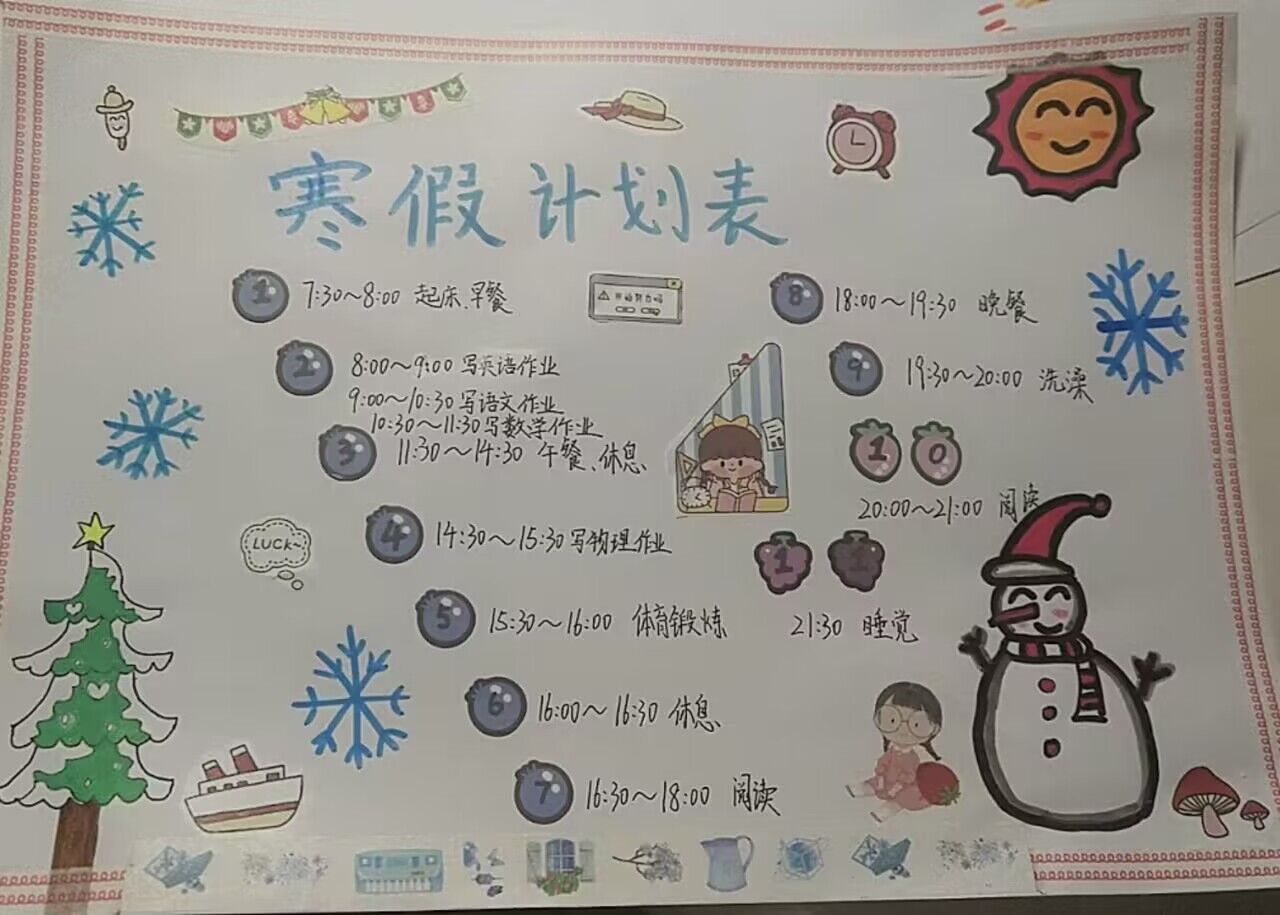 寒假计划表
1 7:30～8:00 起床、早餐
2 8:00～9:00 写英语作业
9:00～10:30 写语文作业
10:30～11:30 写数学作业
3 11:30～14:30 午餐、休息
4 14:30～15:30 写物理作业
LUCK~
5 15:30～16:00 体育锻炼
6 16:00～16:30 休息
7 16:30～18:00 阅读
开始努力吗
8 18:00～19:30 晚餐
9 19:30～20:00 洗澡
10
20:00～21:00 阅读
11
21:30 睡觉